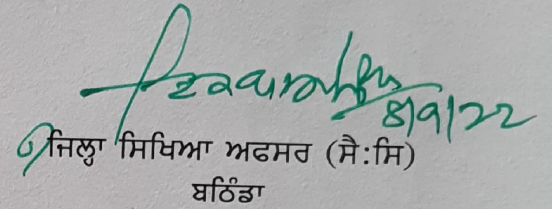 8/9/22
ਜਿਲ੍ਹਾ ਸਿਖਿਆ ਅਫਸਰ (ਸੈ:ਸਿ)
ਬਠਿੰਡਾ